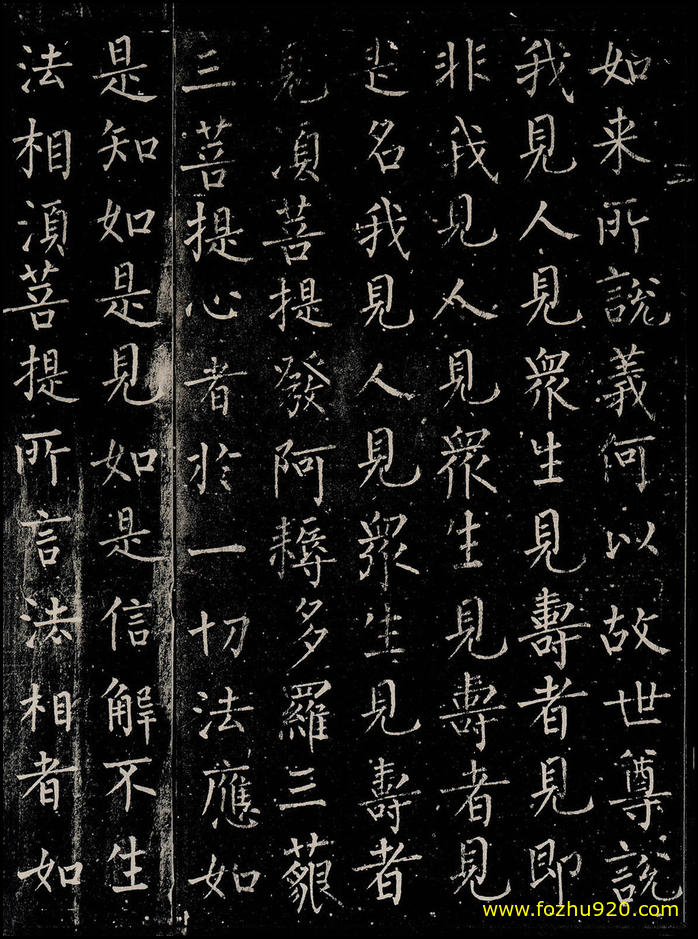 如来所說義何以故世尊說
我見人見衆生見壽者見即
非我見人見衆生見壽者見
是名我見人見衆生見壽者
見湏菩提發阿耨多羅三藐
三菩提心者於一切法應如
是知如是見如是信解不生
法相湏菩提所言法相者如
www.fozhu920.com